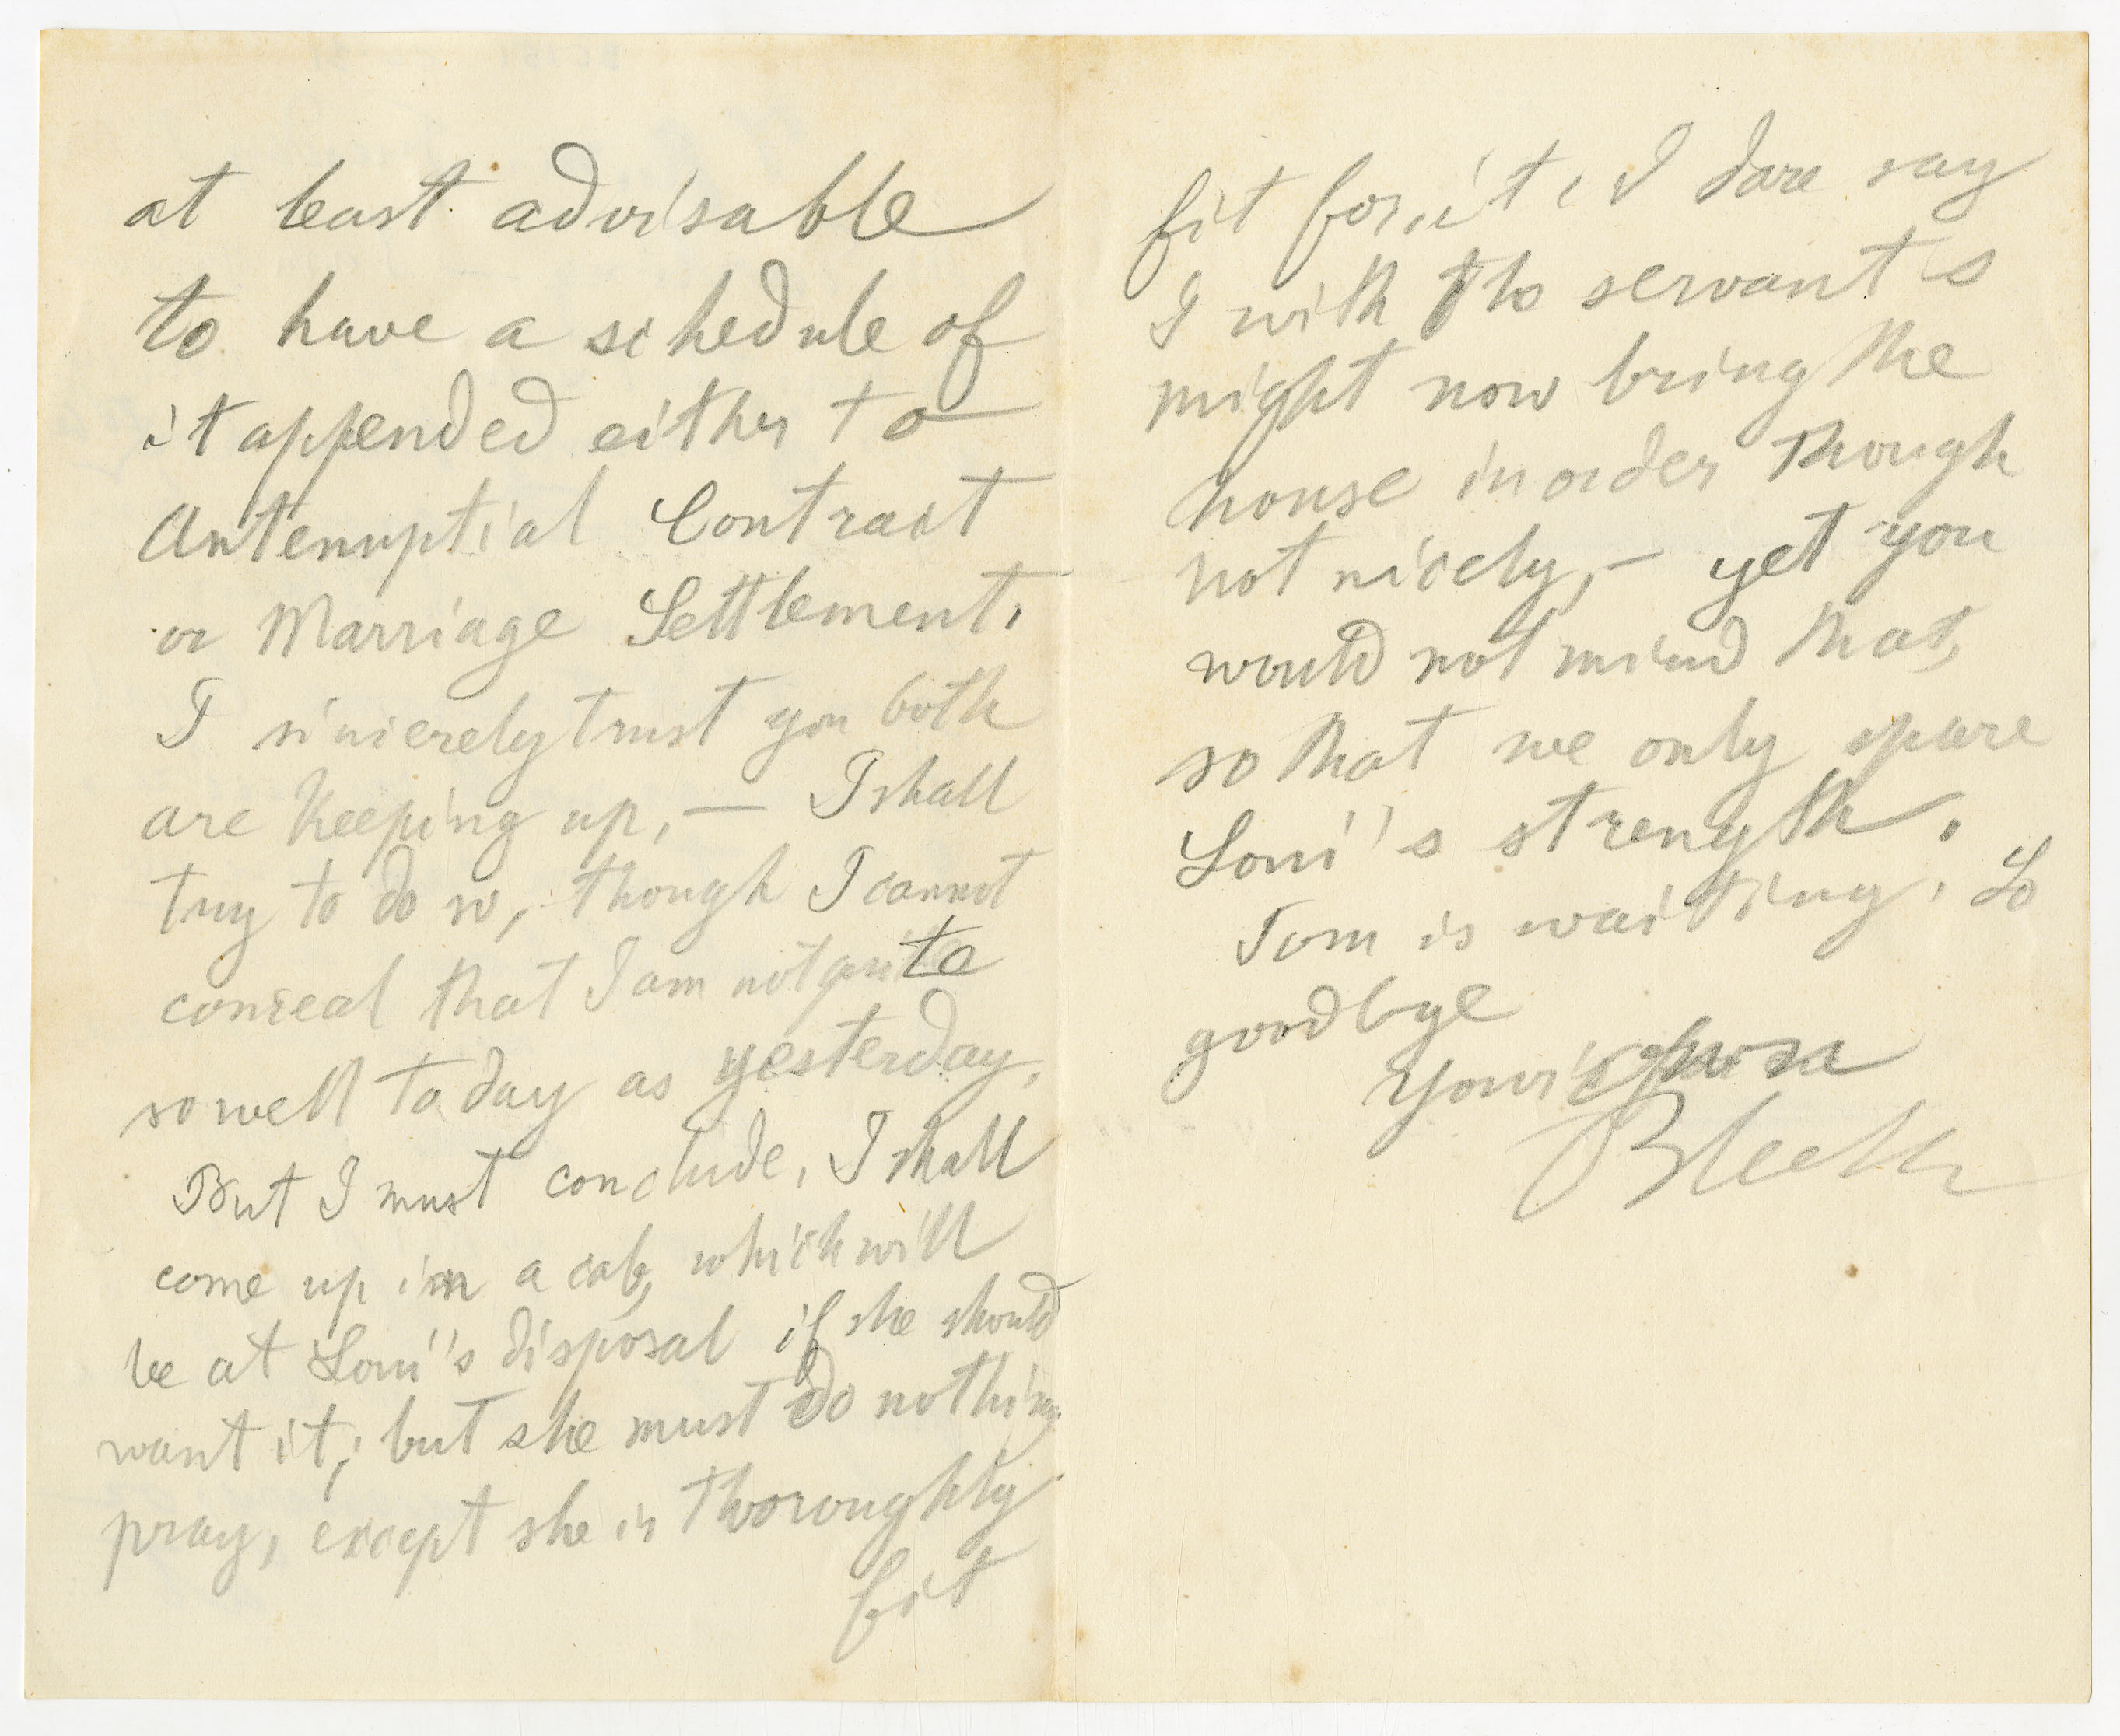 at least advisable
to have a schedule of
it appended either to
Antenuptial Contract
or Marriage Settlement.
I sincerely trust you both
are keeping up, — I shall
try to do so, though I cannot
conceal that I am not quite
so well today as yesterday.
But I must conclude. I shall
come up in a cab, which will
be at Loui's disposal if she should
want it; but she must do nothing
pray, except she is thoroughly
fit
fit for it. I dare say
I with the servants
might now bring the
house in order though
not nicely, — yet you
would not mind that,
so that we only spare
Loui's strength.
Tom is waiting. So
goodbye
Your
Bleek